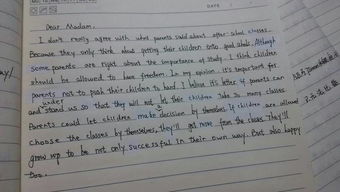 DATE
Dear Madam:
I don't really agree with what parents said about after-school classes.
Because they only think about getting their children into good schools. Although
some parents are right about the importance of study. I think children
should be allowed to have freedom. In my opinion it's important for
parents not to push their children to hard. I believe it's better if parents can
under
and stand us so that they will not let their children take so many classes
Parents could let children make decision by themselves if children are allowed
choose the classes by themselves, they'll get more from the classes They'll
grow up to be not only successful in their own way. But also happy
too.